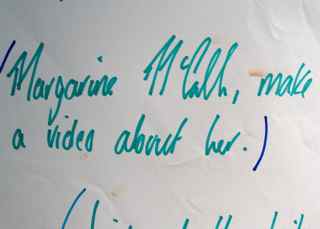 (Margarine McCall, make
a video about her.)